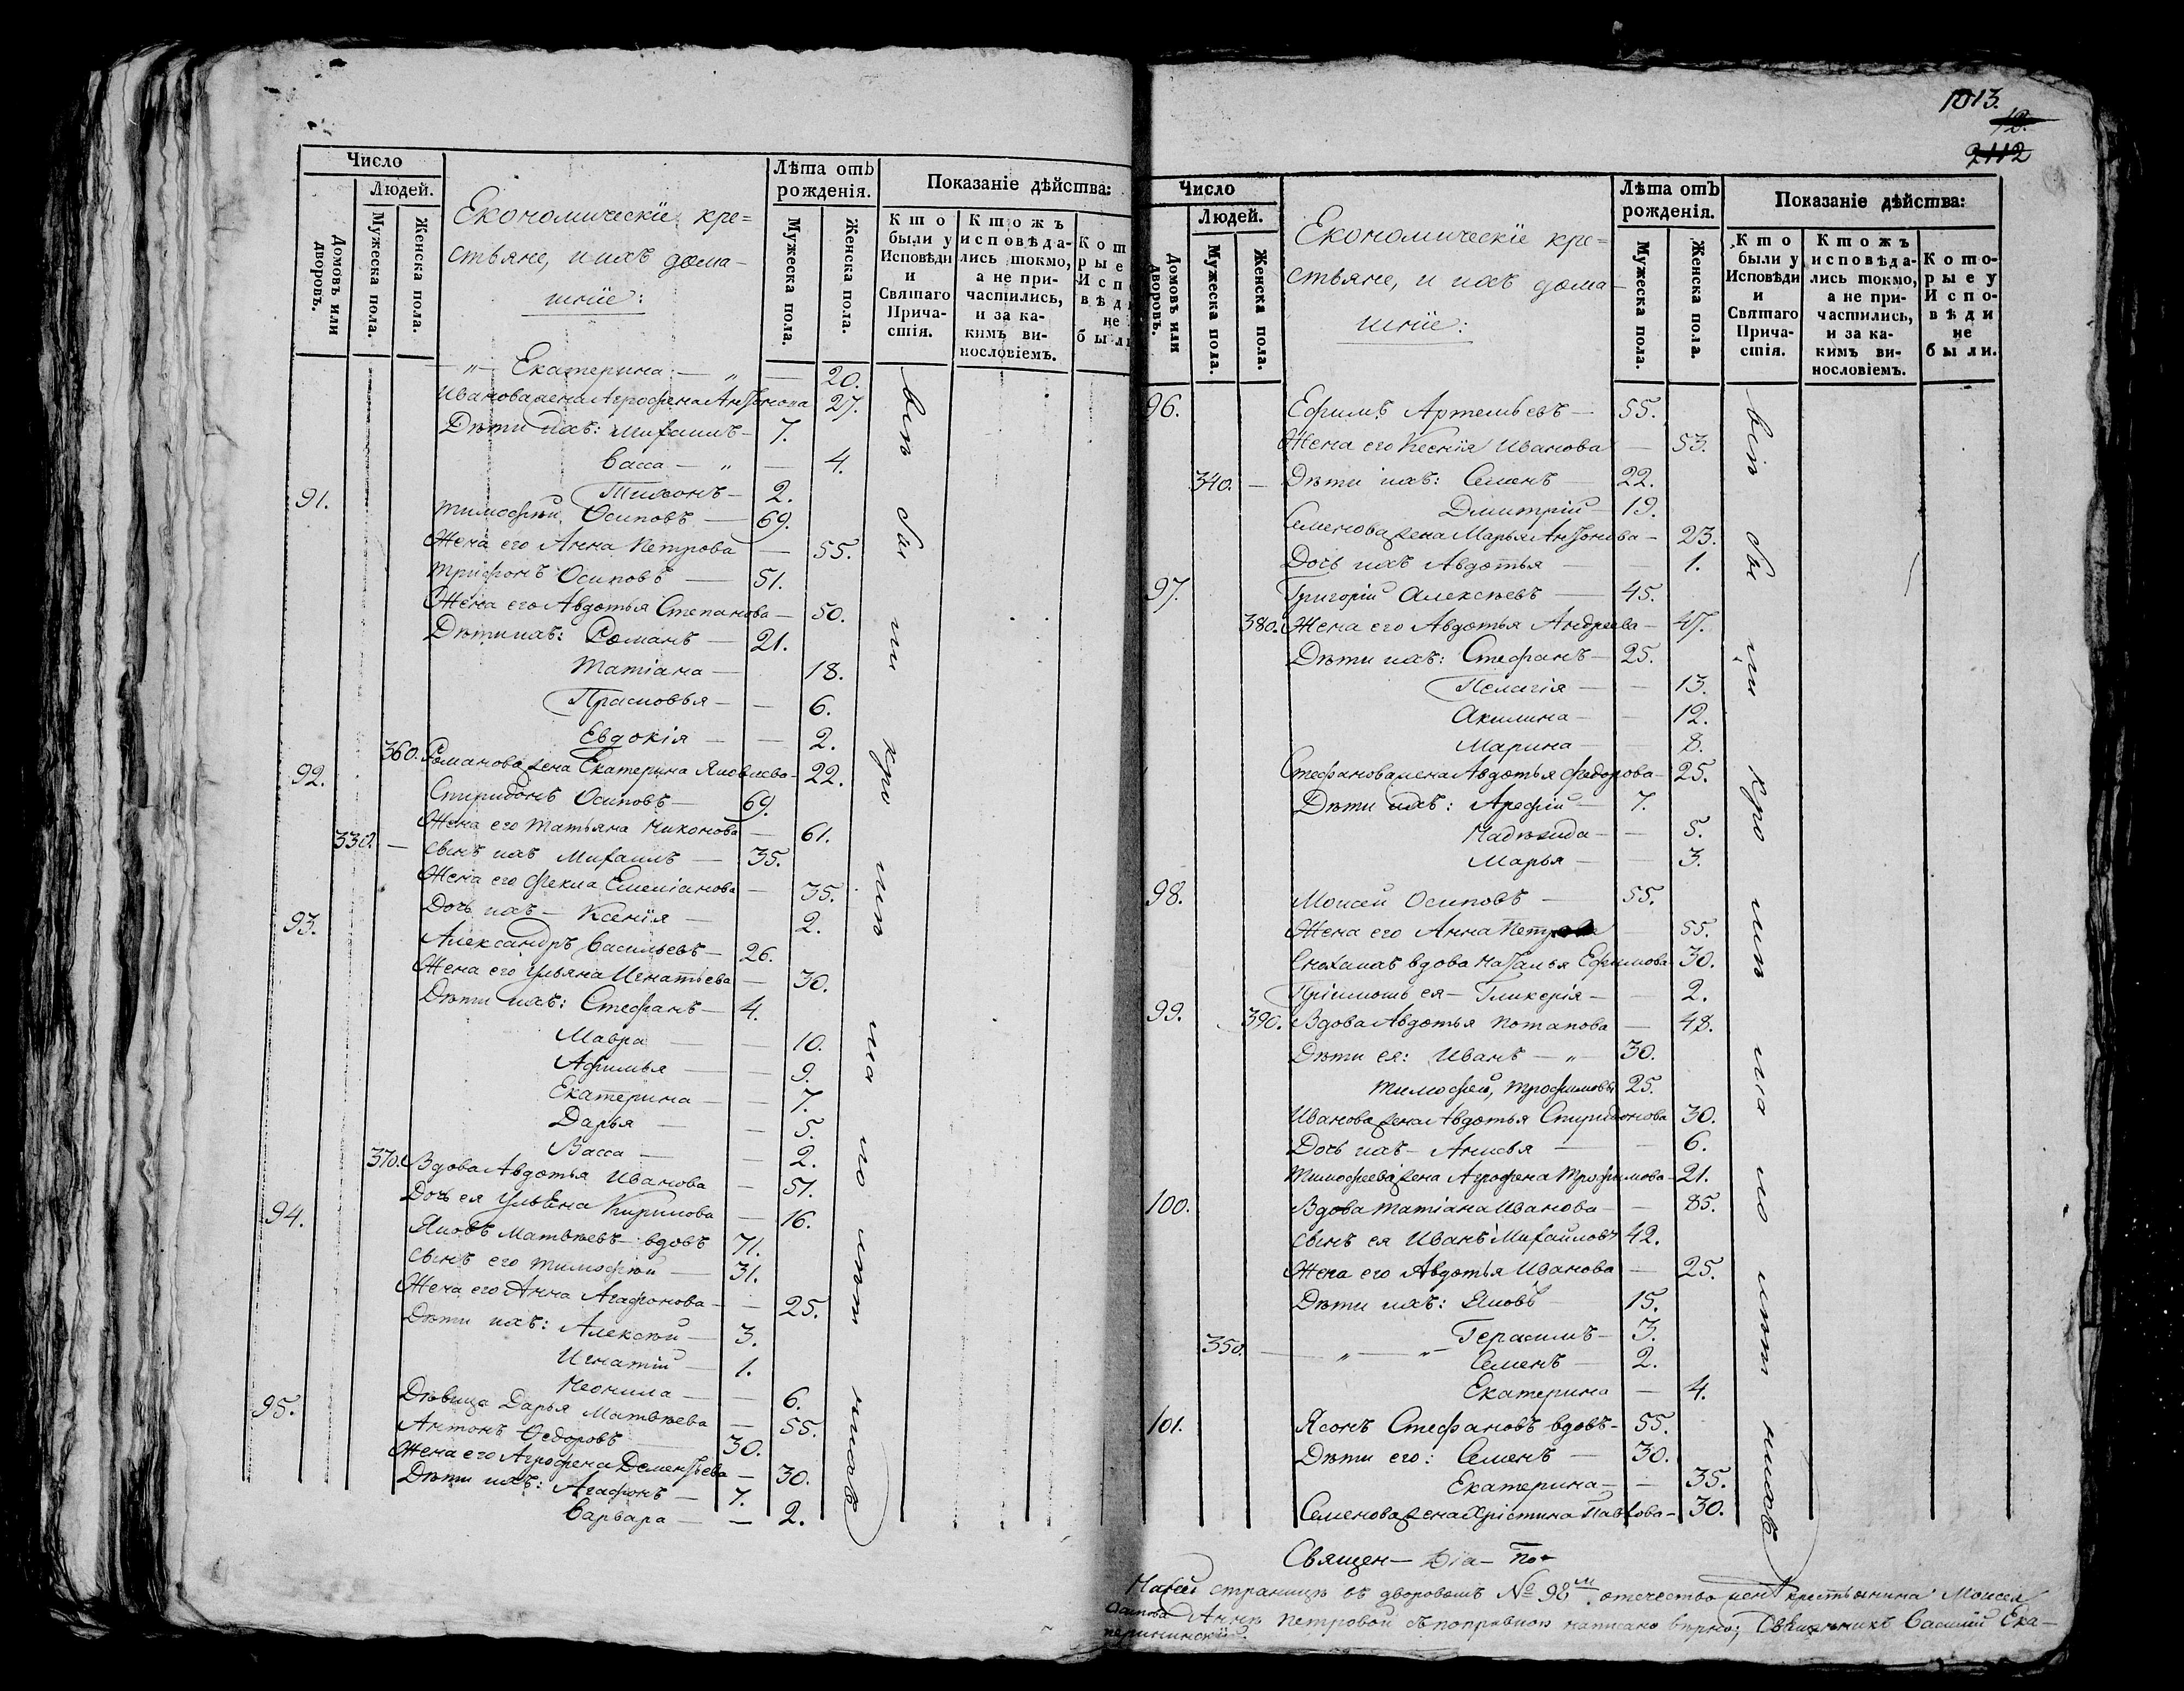 Число
Людей.
Домовъ или дворовъ.
Мужеска пола.
Женска пола.
Економическіе кре=
стьяне, и ихъ дома-
шніе:
Лѣта отъ
рожденія.
Мужеска пола.
Женска пола.
Показаніе дѣйства:
Кто
были у
Исповѣди
и
Святаго
Прича-
стія.
Ктожъ
исповѣда-
лись токмо,
а не при-
частились,
и за ка-
кимъ ви-
нословіемъ.
Кот
рые
Исп
вѣд
не
был
„ — Екатерина — „ — 20.
Иванова жена Агрофена Антонова 27.
Дѣти ихъ: Михаилъ — 7.
Васса — „ — 4.
Тихонъ — 2.
91. Тимофѣй Осиповъ — 69.
Жена его Анна Петрова — 55.
Трифонъ Осиповъ — 51.
Жена его Авдотья Степанова — 50.
Дѣти ихъ: Романъ — 21.
Татіана — 18.
Прасковья — — 6.
Евдокія — — 2.
360. Романова жена Екатерина Яковлева — 22.
92. Спиридонъ Осиповъ — 69.
Жена его Татьяна Никонова — 61.
330. — Сынъ ихъ Михаилъ — 35.
Жена его Фекла Емеліанова — 35.
Дочь ихъ — Ксенія — 2.
93. Александръ Васильевъ — 26.
Жена его Ульяна Игнатьева — 30.
Дѣти ихъ: Стефанъ — 4.
Мавра — — 10.
Афимья — — 9.
Екатерина — — 7.
Дарья — — 5.
Васса — — 2.
370. Вдова Авдотья Иванова — 51.
Дочь ея Ульяна Кирилова — 16.
94. Яковъ Матвѣевъ — вдовъ 71.
Сынъ его Тимофѣй — 31.
Жена его Анна Агафонова — — 25.
Дѣти ихъ: Алексѣй — 3.
Игнатій — 1.
Неонила — — 6.
Дѣвица Дарья Матвѣева — 55.
95. Антонъ Ѳедоровъ 30.
Жена его Агрофена Дементьева — 30.
Дѣти ихъ: Агафонъ — 7.
Варвара — — 2.
1013.
12.
2112
Число
Людей.
Домовъ или дворовъ.
Мужеска пола.
Женска пола.
Економическіе кре=
стьяне, и ихъ дома-
шніе:
Лѣта отЪ
рожденія.
Мужеска пола.
Женска пола.
Показаніе дѣйства:
Кто
были у
Исповѣди
и
Святаго
Прича-
стія.
Ктожъ
исповѣда-
лись токмо,
а не при-
частились,
и за ка-
кимъ ви-
нословіемъ.
Кото-
рые у
Испо-
вѣди
не
были.
96. Ефимъ Артемьевъ — 55.
Жена его Ксенія Иванова — 53.
340. — Дѣти ихъ: Семенъ — 22.
Дмитрій — 19.
Семенова жена Марья Антонова — 23.
Дочь ихъ Авдотья — — 1.
97. Григорій Алексѣевъ — 45.
380. Жена его Авдотья Андреева — 47.
Дѣти ихъ: Стефанъ — 25.
Пелагія — — 13.
Акилина — — 12.
Марина — — 8.
Стефанова жена Авдотья Федорова — 25.
Дѣти ихъ: Арефій — 7.
Надежда — — 5.
Марья — — 3.
98. Моисей Осиповъ — 55.
Жена его Анна Петрова — 55.
Сноха ихъ вдова Наталья Ефимова 30.
Пріимышь ея — Гликерія — — 2.
99. 390. Вдова Авдотья Потапова — 48.
Дѣти ея: Иванъ — „ — 30.
Тимофей, Трофимовы 25.
Иванова жена Авдотья Спиридонова 30.
Дочь ихъ — Анисья — — 6.
Тимофеева жена Агрофена Трофимова — 21.
100. Вдова Татіана Иванова — — 85.
Сынъ ея Иванъ Михайловъ 42.
Жена его Авдотья Иванова — 25.
Дѣти ихъ: Яковъ — 15.
Герасимъ — 3.
350. — „ — „ — Семенъ — 2.
Екатерина — 4.
101. Ясонъ Стефановъ вдовъ — 55.
Дѣти его: Семенъ — 30.
Екатерина — — 35.
Семенова жена Христина Павлова — 30.
Священ — Діа — По —
На сей страницѣ въ дворовомъ № 98м отечество жены крестьянина Моисея
Осипова Анны Петровой съ поправкою написано вѣрно; Священникъ Василій Ека-
терининскій.